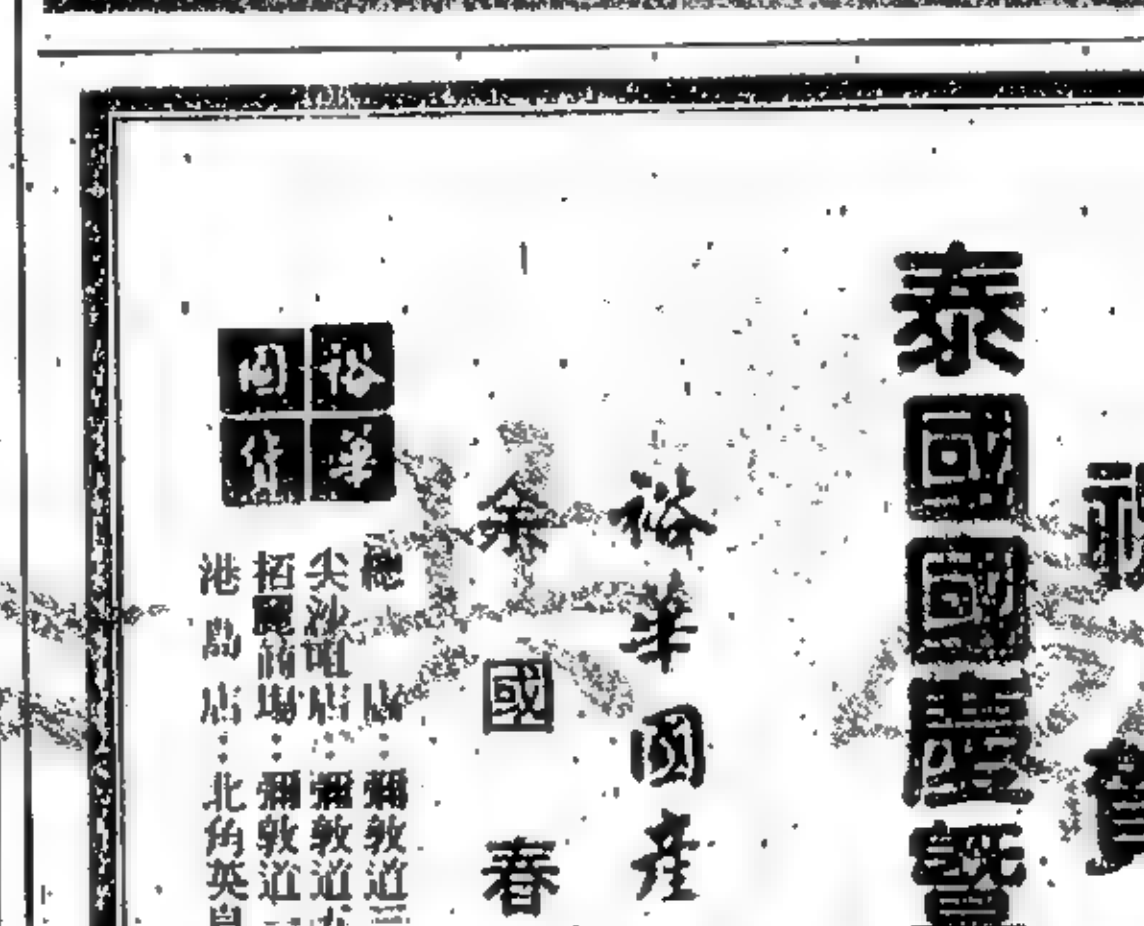 泰國國慶暨
裕華國產
余國春
裕華國貨
總店：彌敦道三
尖沙咀店：彌敦道五
栢麗商場：彌敦道一
港島店：北角英皇